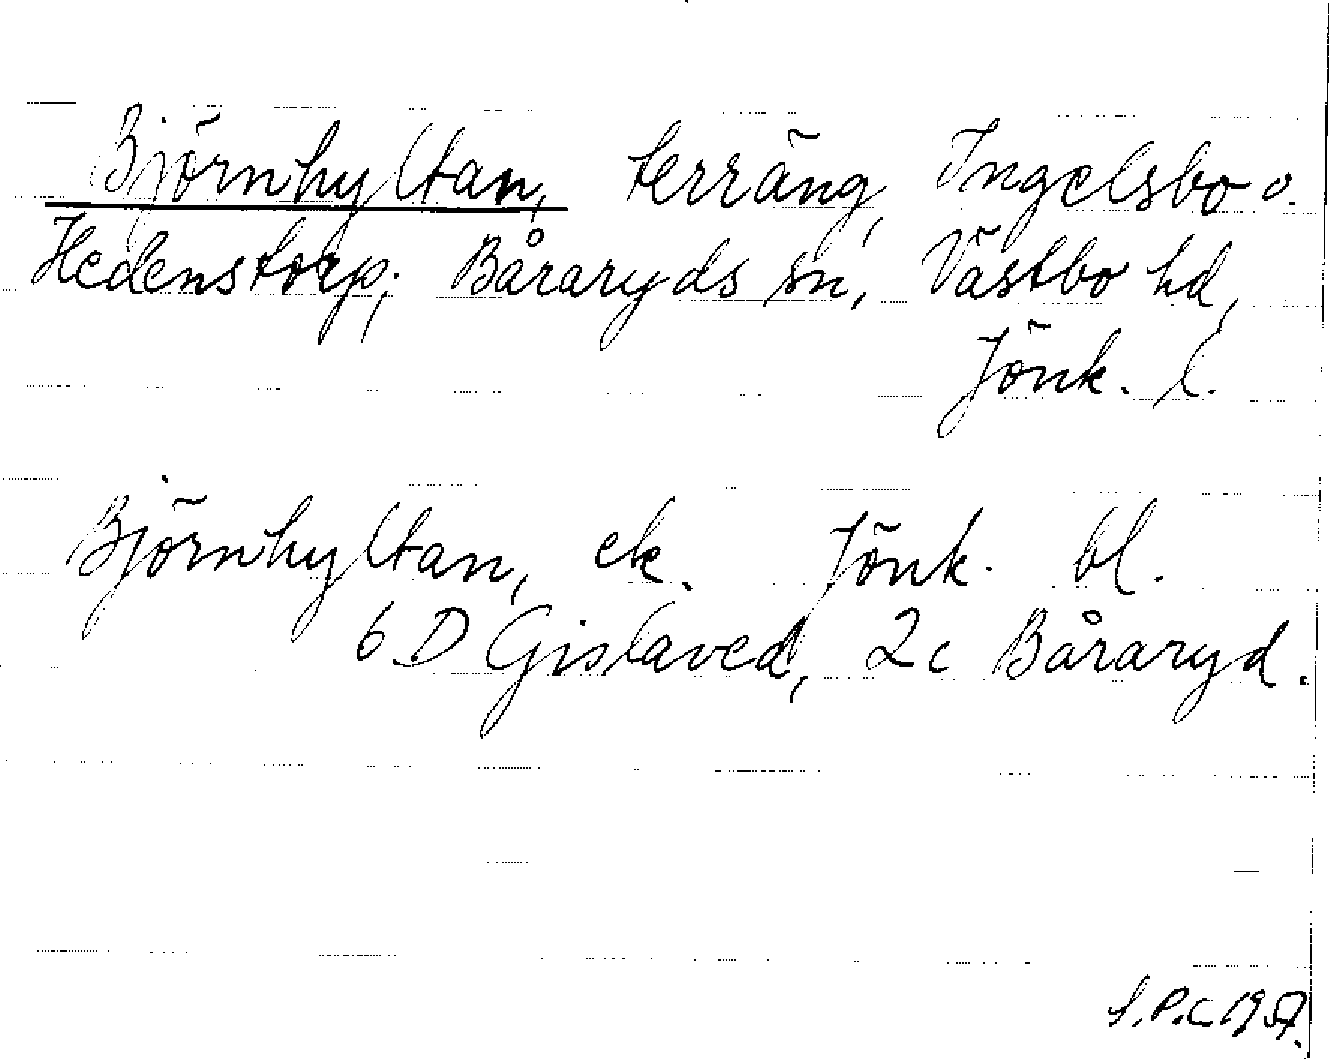 Björnhyltan, terräng, Ingelsbo o.
Hedenstorp, Båraryds sn, Västbo hd,
Jönk. l.
Björnhyltan, ek. Jönk. bl.
6 D Gislaved, 2c Båraryd.
S.P.C. 1957.